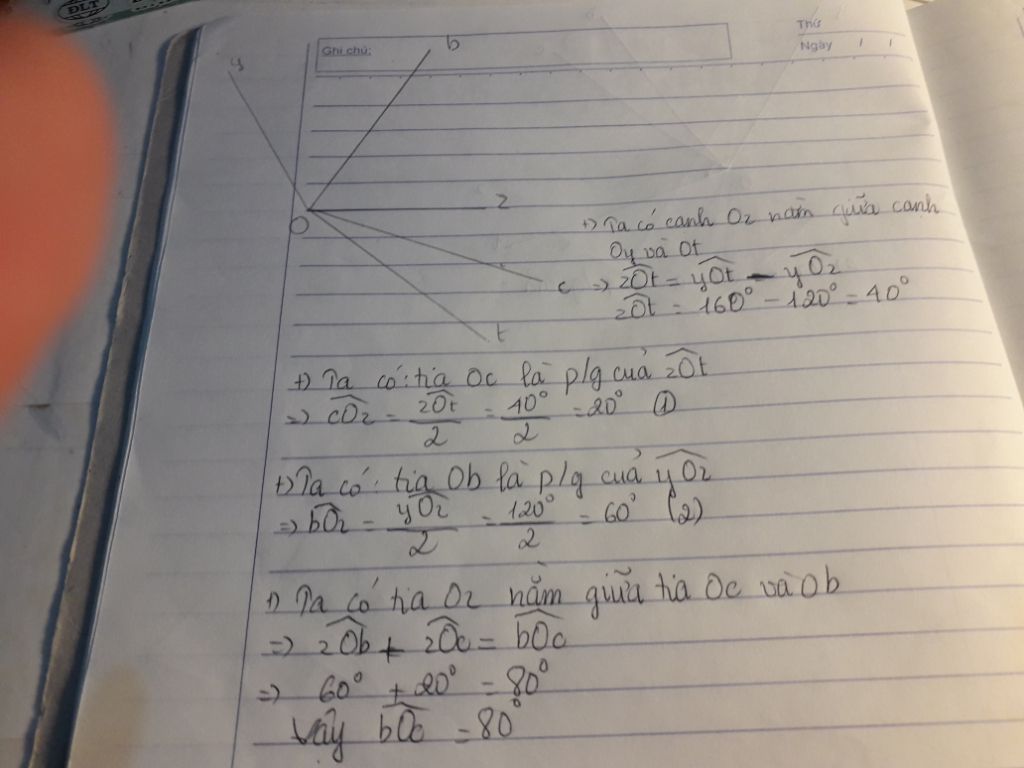 ĐLT
Ghi chú:
Thứ
Ngày / /
y
b
O
z
c
t
+) Ta có cạnh Oz nằm giữa cạnh
Oy và Ot
=> zOt = yOt - yOz
zOt = 160° - 120° = 40°
+) Ta có: tia Oc là p/g của zOt
=> cOz = zOt/2 = 40°/2 = 20° (1)
+) Ta có: tia Ob là p/g của yOz
=> bOz = yOz/2 = 120°/2 = 60° (2)
+) Ta có tia Oz nằm giữa tia Oc và Ob
=> zOb + zOc = bOc
=> 60° + 20° = 80°
Vậy bOc = 80°